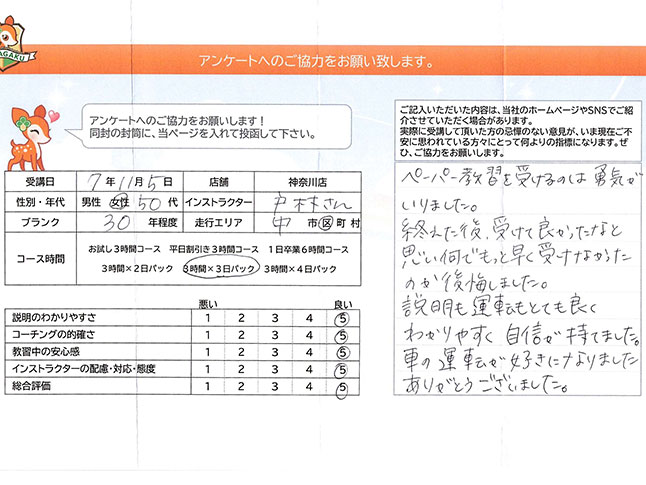 AGAKU
アンケートへのご協力をお願い致します。
アンケートへのご協力をお願いします！
同封の封筒に、当ページを入れて投函して下さい。
ご記入いただいた内容は、当社のホームページやSNSでご紹
介させていただく場合があります。
実際に受講して頂いた方の忌憚のない意見が、いま現在ご不
安に思われている方々にとって何よりの指標になります。ぜ
ひ、ご協力をお願いします。
受講日 7年11月5日 店舗 神奈川店
性別・年代 男性 女性 50代 インストラクター 戸林さん
ブランク 30年程度 走行エリア 中 市区町村
コース時間 お試し3時間コース 平日割引き3時間コース 1日卒業6時間コース
3時間×2日パック 3時間×3日パック 3時間×4日パック
悪い 良い
説明のわかりやすさ 1 2 3 4 5
コーチングの的確さ 1 2 3 4 5
教習中の安心感 1 2 3 4 5
インストラクターの配慮・対応・態度 1 2 3 4 5
総合評価 1 2 3 4 5
ペーパー教習を受けるのは勇気が
いりました。
終えた後、受けて良かったなと
思い何でもっと早く受けなかった
のか後悔しました。
説明も運転もとても良く
わかりやすく自信が持てました。
車の運転が好きになりました
ありがとうございました。